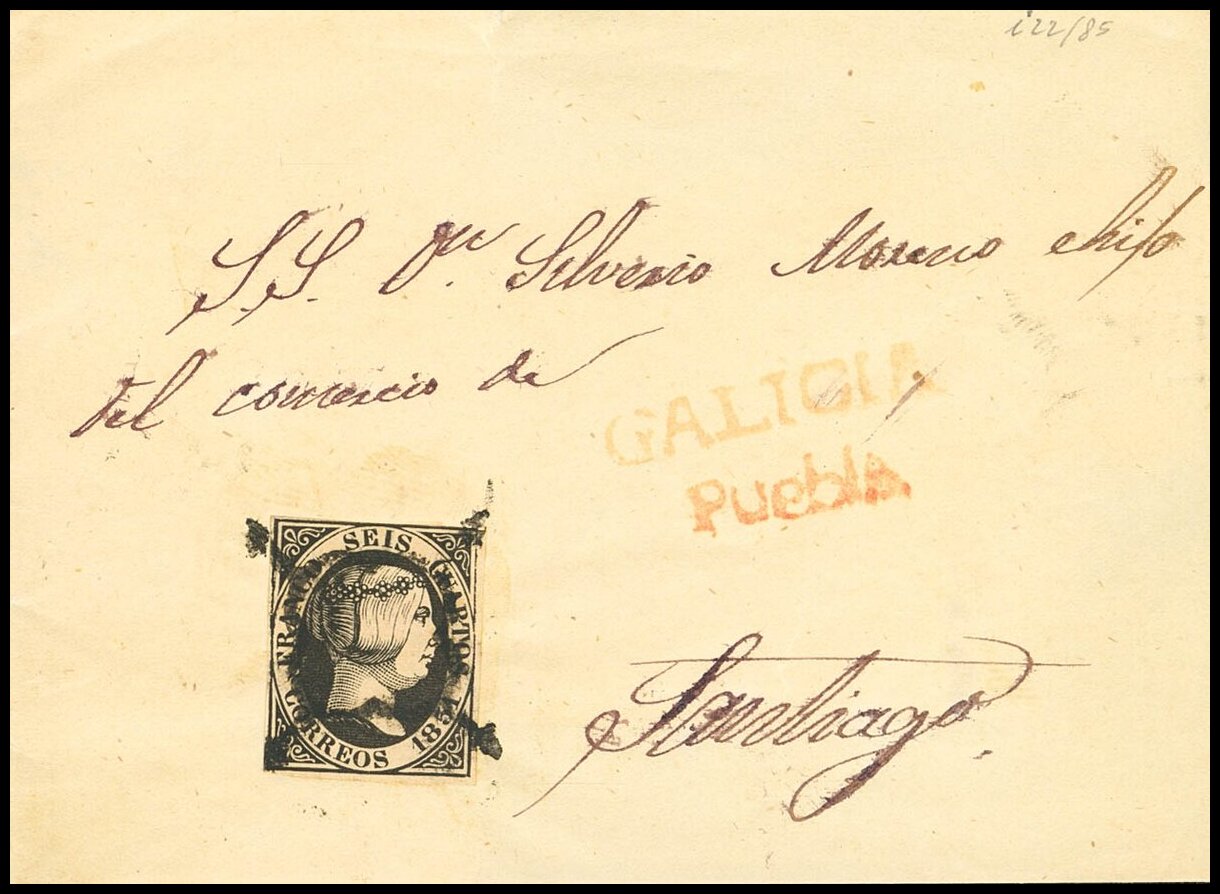 122/85
S.S. Dn. Silverio Moreno é hijo
del comercio de
GALICIA
Puebla
FRANCO SEIS CUARTOS
CORREOS 1851
Santiago.